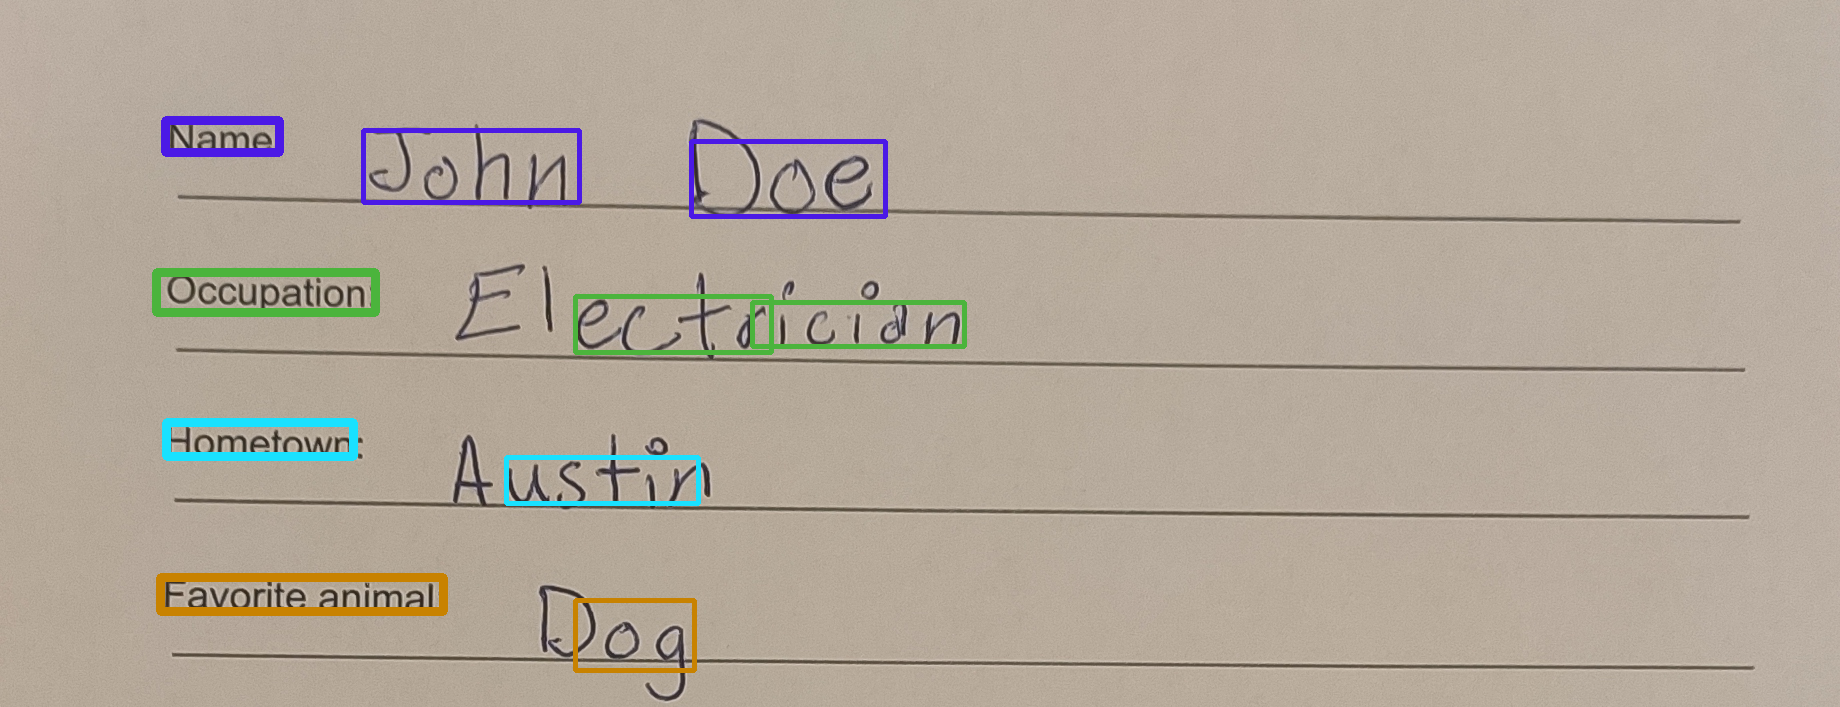 Name John Doe
Occupation: Electrician
Hometown: Austin
Favorite animal: Dog